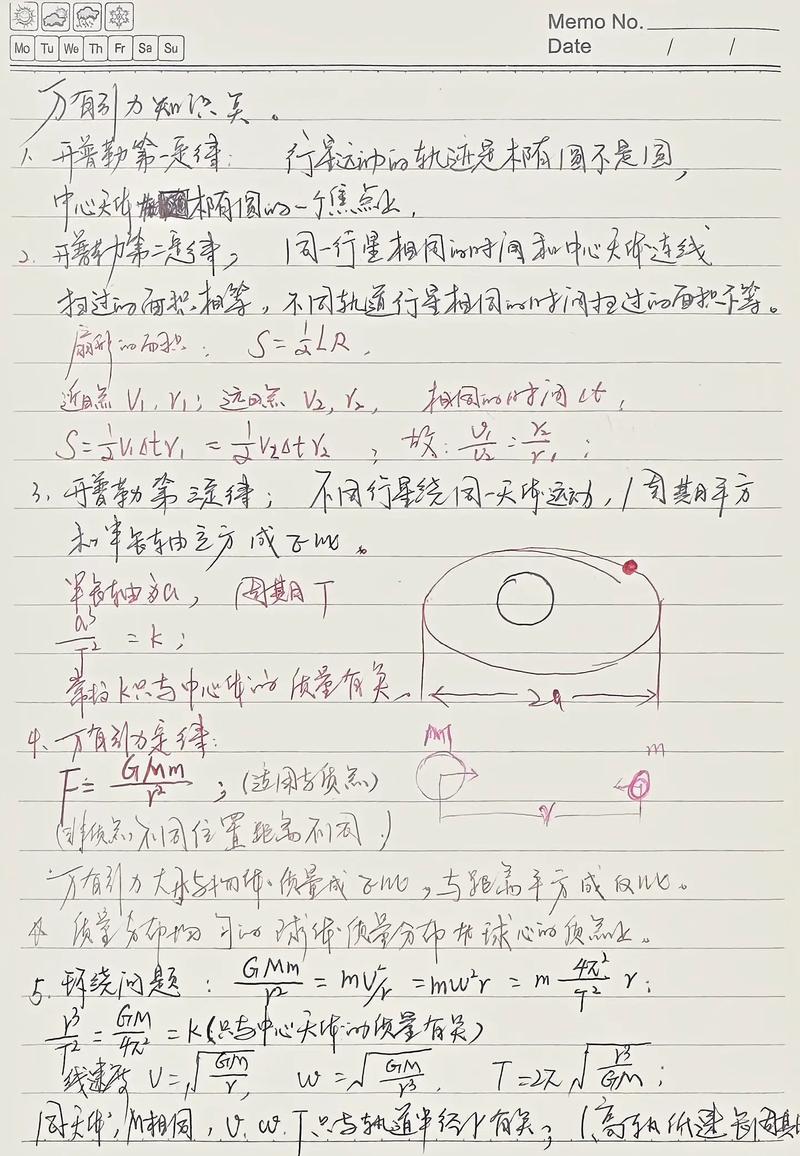 Memo No.
Mo Tu We Th Fr Sa Su
Date / /
万有引力知识点。
1、开普勒第一定律: 行星运动的轨迹是椭圆不是圆,
中心天体在椭圆的一个焦点上.
2. 开普勒第二定律, 同一行星相同的时间和中心天体连线
扫过的面积相等, 不同轨道行星相同的时间扫过的面积不等。
扇形的面积: S=½LR,
近日点 V₁, r₁; 远日点 V₂, r₂, 相同的时间Δt,
S=½V₁Δtr₁ = ½V₂Δtr₂, 故: V₁/V₂=r₂/r₁;
3、开普勒第三定律; 不同行星绕同一天体运动, 周期平方
和半长轴立方成正比。
半长轴为a, 周期T
a³/T² = k;
常数k只与中心体的质量有关.
2a
4、万有引力定律:
M
m
F= GMm/r² ; (适用与质点)
r
(非质点,不同位置距离不同.)
万有引力大小与物体质量成正比, 与距离平方成反比。
质量分布均匀的球体质量分布在球心的质点上。
5. 环绕问题: GMm/r² = mV²/r =mω²r = m 4π²/T² r;
r³/T² = GM/4π² = k(只与中心天体的质量有关)
线速度 V=√(GM/r), ω=√(GM/r³), T=2π√(r³/GM);
同天体, M相同, V. ω. T只与轨道半径r有关; 高轨低速长周期